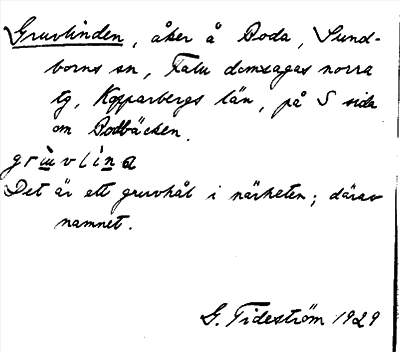 Gruvlinden, åker å Boda, Sund-
borns sn, Falu domsagas norra
tg, Kopparbergs län, på S sida
om Bodbäcken.
Det är ett gruvhål i närheten; därav
namnet.
G. Tideström 1929